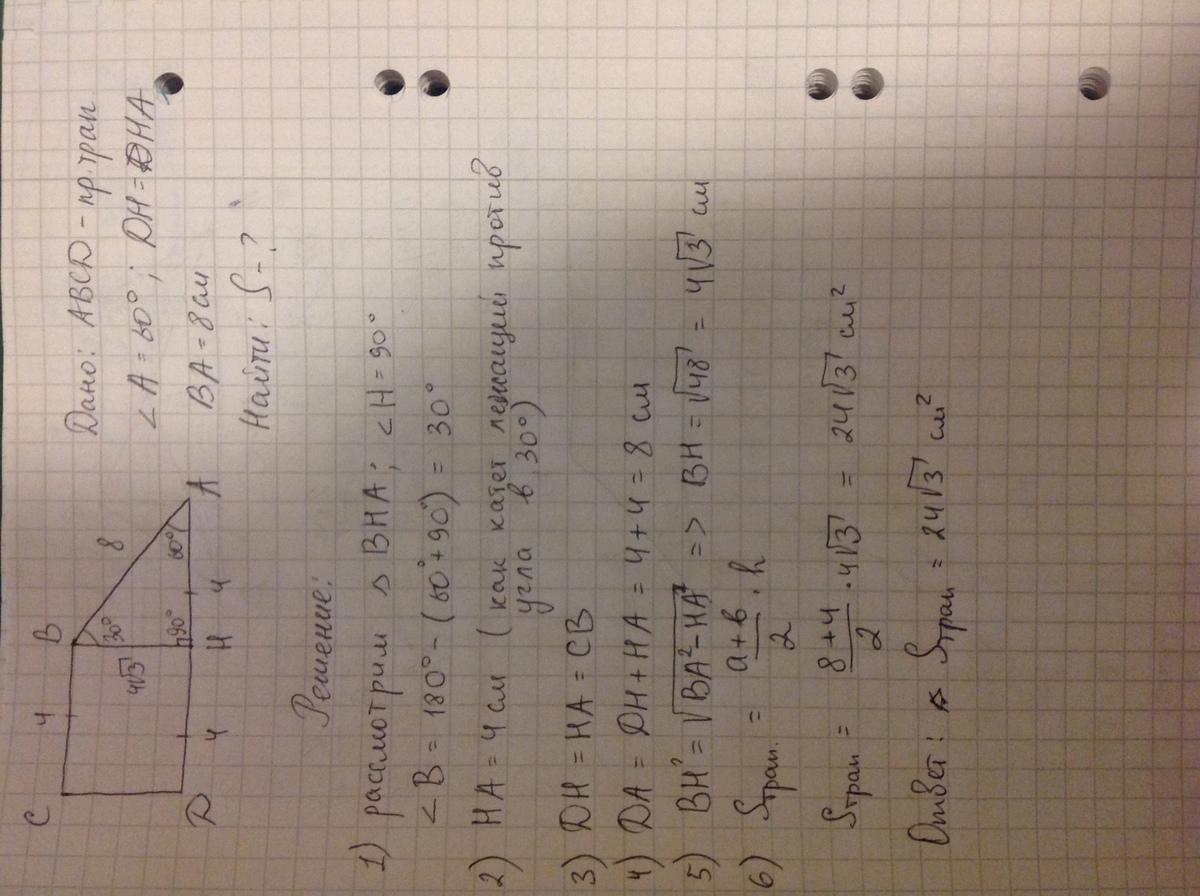 C 4 B
8
30°
4√3
90° 60°
D 4 H 4 A
Дано: ABCD - пр. трап
∠A = 60°; DH = HA
BA = 8 см
Найти: S - ?
Решение:
1) рассмотрим △ BHA; ∠H = 90°
∠B = 180° - (60° + 90°) = 30°
2) HA = 4 см (как катет лежащий против
угла в 30°)
3) DH = HA = CB
4) DA = DH + HA = 4 + 4 = 8 см
5) BH² = √BA² - HA² => BH = √48 = 4√3 см
6) Sтрап. = a + b / 2 · h
Sтрап = 8 + 4 / 2 · 4√3 = 24√3 см²
Ответ: Sтрап = 24√3 см²